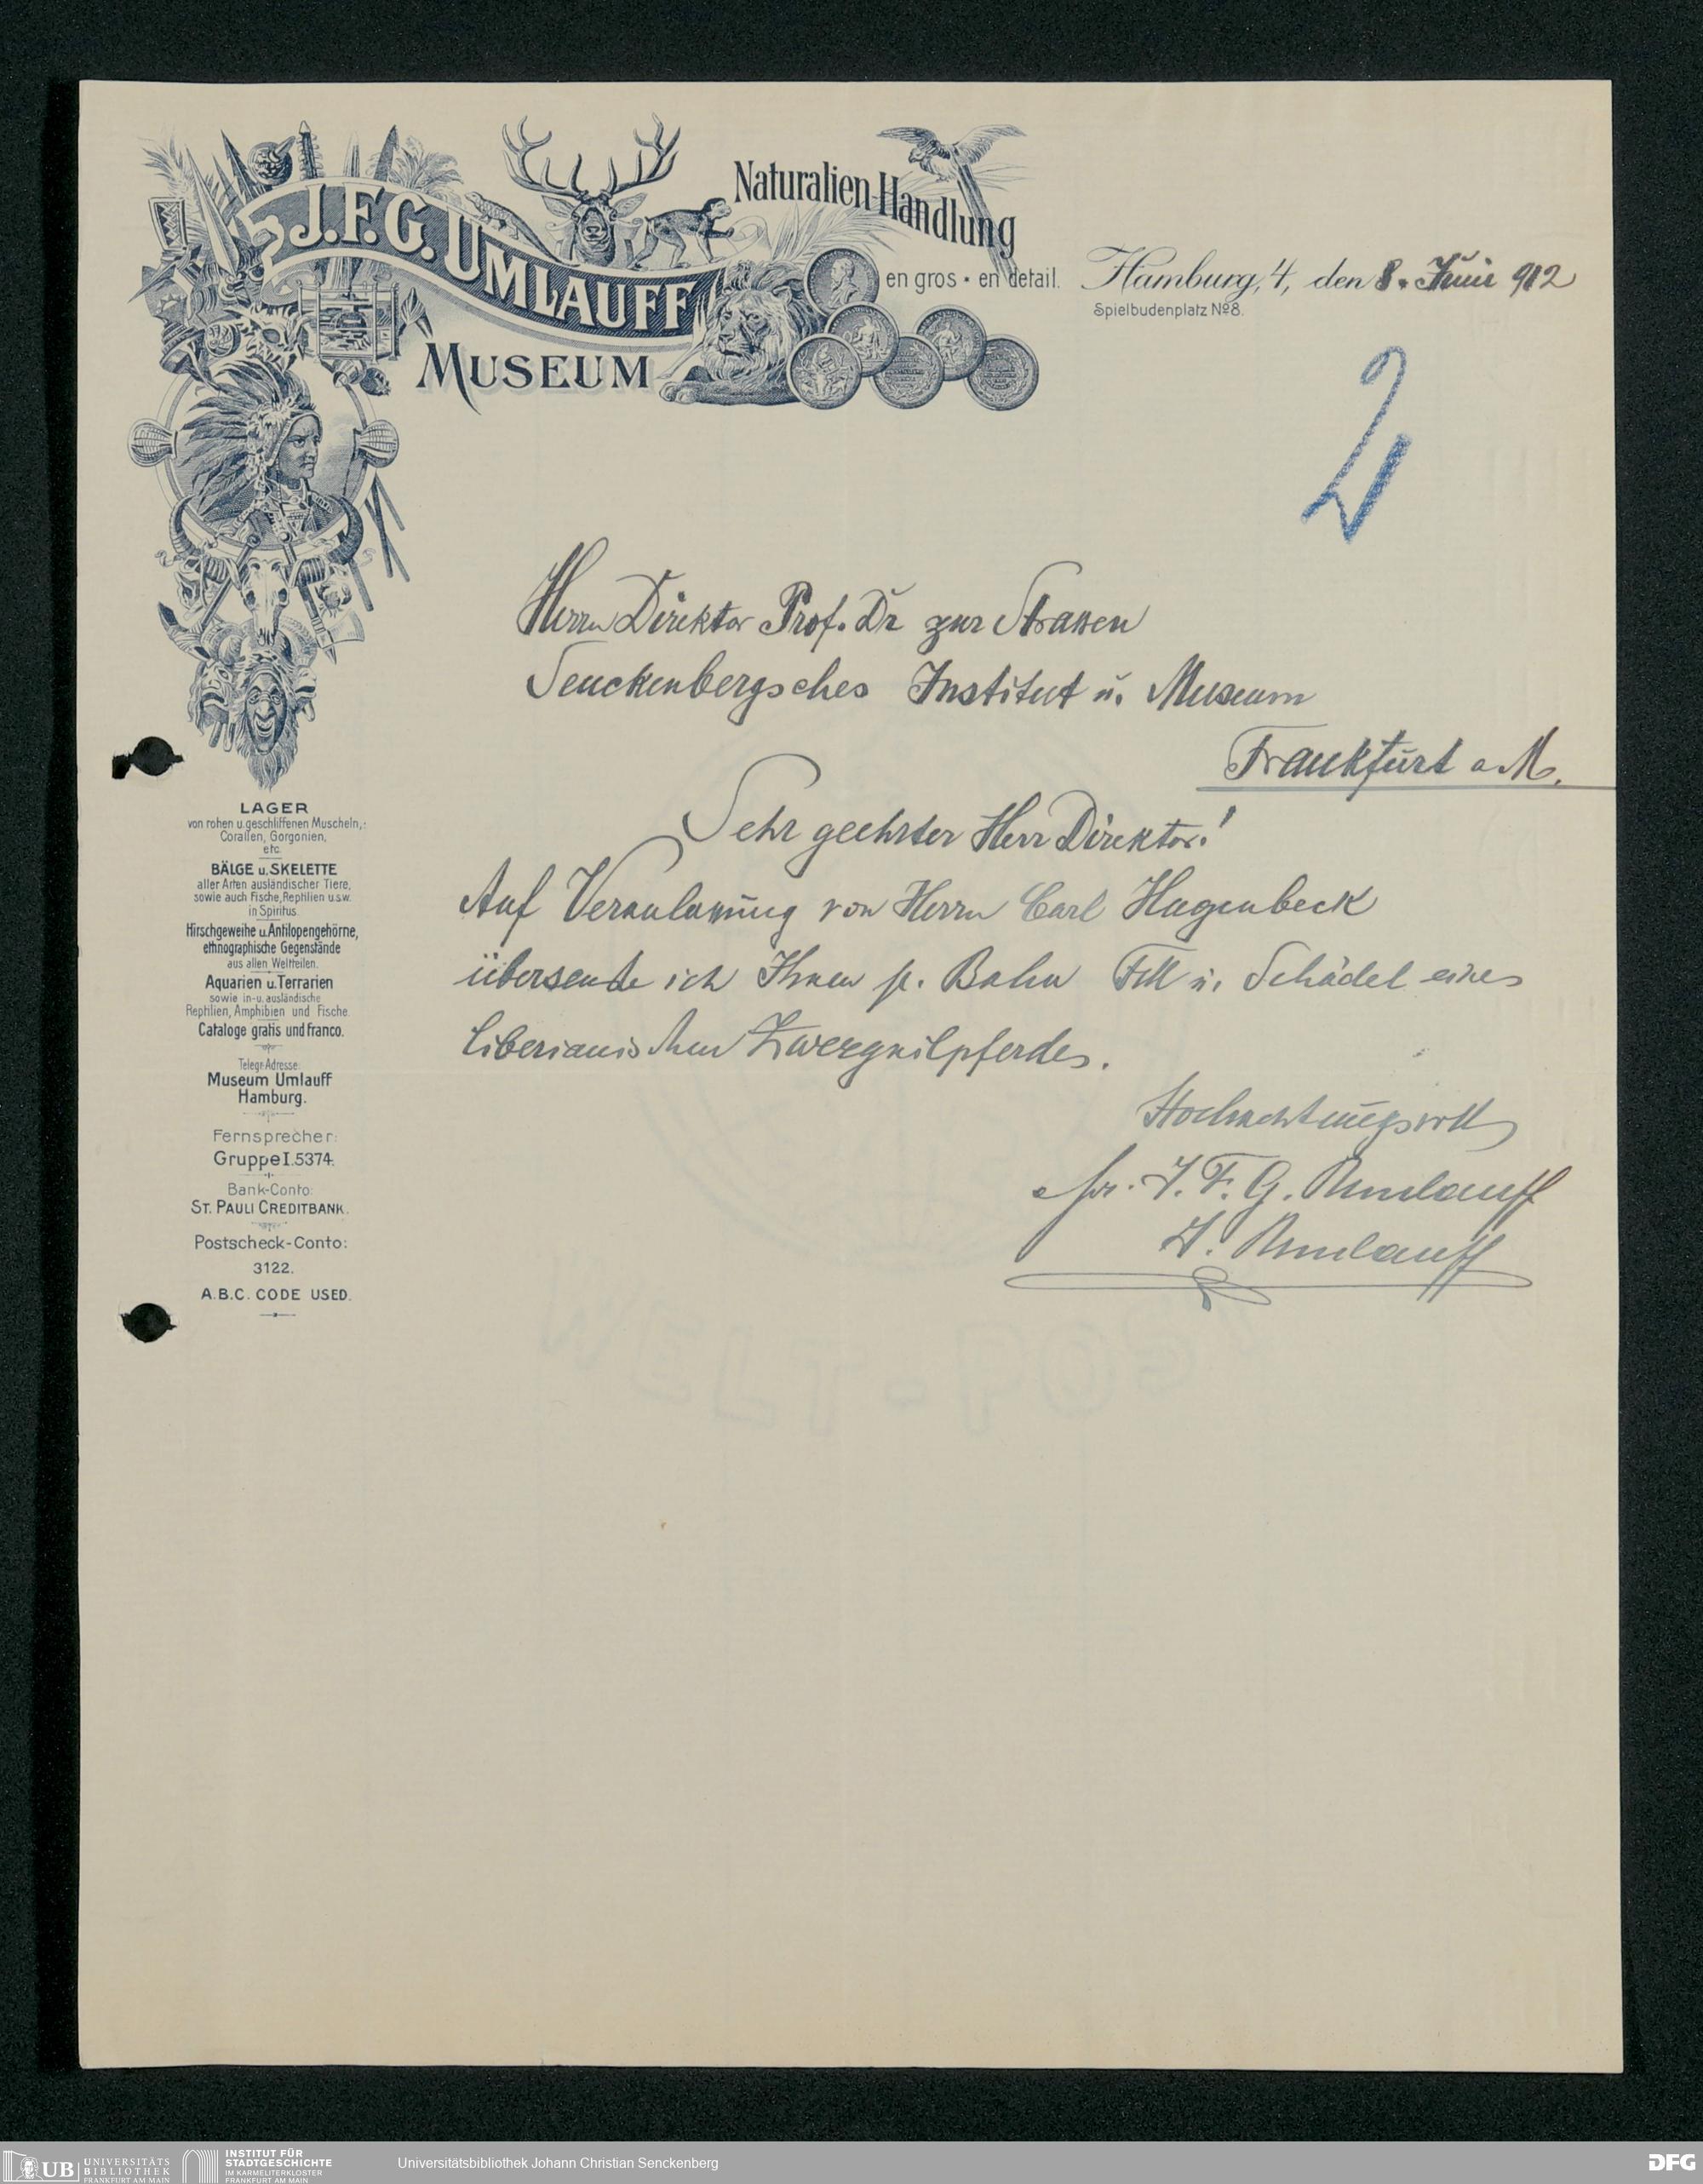 J.F.G. UMLAUFF
MUSEUM
Naturalien-Handlung
en gros • en detail.
Hamburg, 4, den 8. Juni 912
Spielbudenplatz No 8.
Herrn Direktor Prof. Dr zur Strassen
Senckenbergsches Institut u. Museum
Frankfurt a M.
Sehr geehrter Herr Direktor!
Auf Veranlassung von Herrn Carl Hagenbeck
übersende ich Ihnen p. Bahn Fell u. Schädel eines
liberianischen Zwergnilpferdes.
Hochachtungsvoll
J. F. G. Umlauff
Umlauff
LAGER
von rohen u. geschliffenen Muscheln,
Corallen, Gorgonien,
etc.
BÄLGE u. SKELETTE
aller Arten ausländischer Tiere,
sowie auch Fische, Reptilien u.s.w.
in Spiritus.
Hirschgeweihe u. Antilopengehörne,
ethnographische Gegenstände
aus allen Weltteilen.
Aquarien u. Terrarien
sowie in- u. ausländische
Reptilien, Amphibien und Fische.
Cataloge gratis und franco.
Telegr-Adresse:
Museum Umlauff
Hamburg.
Fernsprecher:
Gruppe I. 5374.
Bank-Conto:
ST. PAULI CREDITBANK.
Postscheck-Conto:
3122.
A.B.C. CODE USED.
UB UNIVERSITÄTS
BIBLIOTHEK
FRANKFURT AM MAIN
INSTITUT FÜR
STADTGESCHICHTE
IM KARMELITERKLOSTER
FRANKFURT AM MAIN
Universitätsbibliothek Johann Christian Senckenberg
DFG